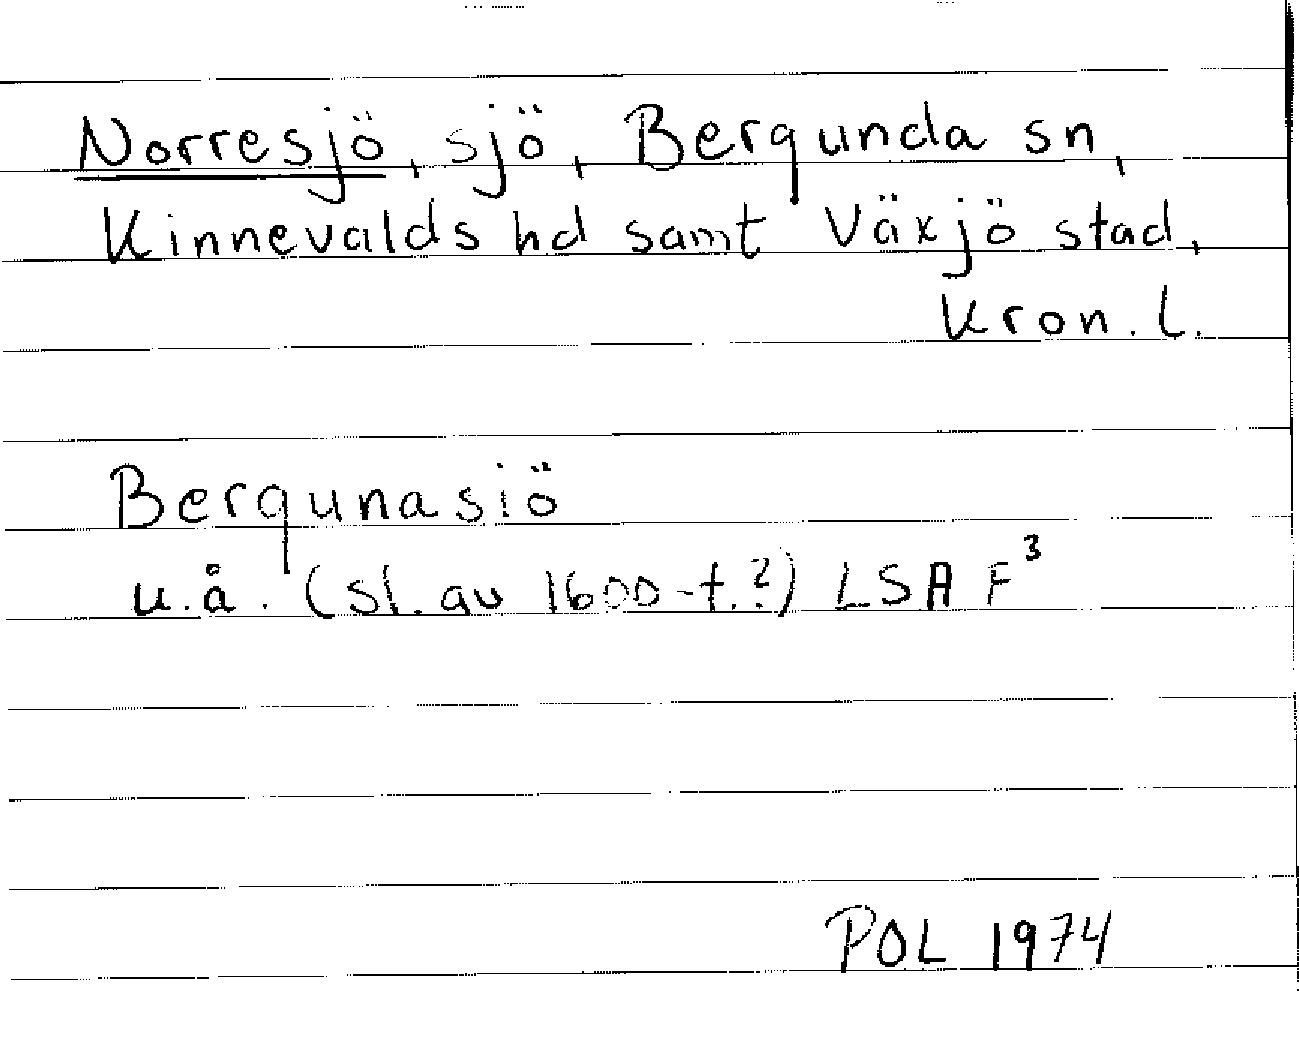 Norresjö, sjö, Bergunda sn,
Kinnevalds hd samt Växjö stad,
Kron. l.
Bergunasiö
u.å. (sl. av 1600-t.?) LSA F³
POL 1974